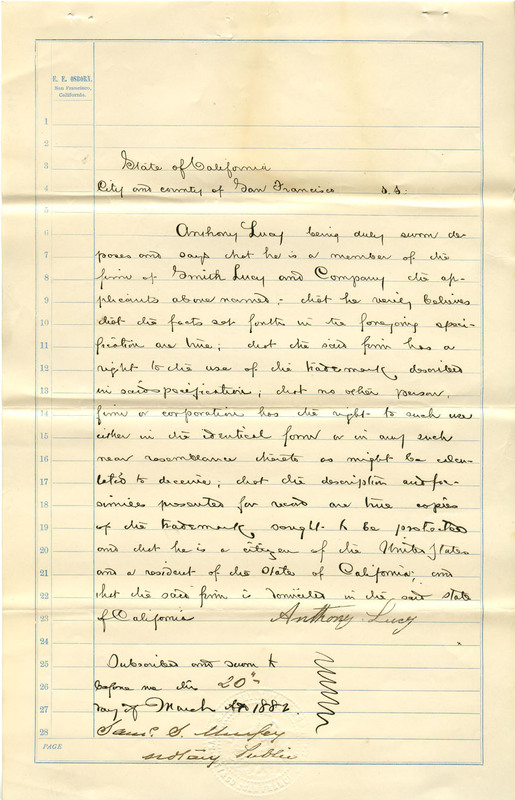 C. E. OSBORN,
San Francisco,
California.
1
2
3 State of California
4 City and county of San Francisco s.s.
5
6 Anthony Lucy being duly sworn de-
7 poses and says that he is a member of the
8 firm of Smith Lucy and Company the ap-
9 plicants above named; that he verily believes
10 that the facts set forth in the foregoing speci-
11 fication are true; that the said firm has a
12 right to the use of the trademark described
13 in said specification; that no other person,
14 firm or corporation has the right to such use
15 either in the identical form or in any such
16 near resemblance thereto as might be calcu-
17 lated to deceive; that the description and fac-
18 similes presented for record are true copies
19 of the trademark sought to be protected
20 and that he is a citizen of the United States
21 and a resident of the State of California; and
22 that the said firm is domiciled in the said State
23 of California Anthony Lucy
24
25 Subscribed and sworn to
26 before me this 20th
27 day of March AD 1882.
28 Saml. S. Murfey
PAGE Notary Public